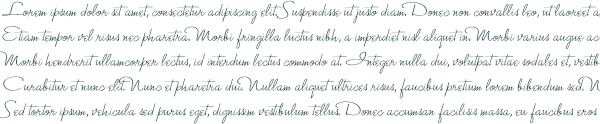 Lorem ipsum dolor sit amet, consectetur adipiscing elit. Suspendisse ut justo diam. Donec non convallis leo, ut laoreet a
Etiam tempor vel risus nec pharetra. Morbi fringilla luctus nibh, a imperdiet nisl aliquet in. Morbi varius augue ac
Morbi hendrerit ullamcorper lectus, id interdum lectus commodo at. Integer nulla dui, volutpat vitae sodales et, vestib
Curabitur et nunc elit. Nunc et pharetra dui. Nullam aliquet ultrices risus, faucibus pretium lorem bibendum sed. N
Sed tortor ipsum, vehicula sed purus eget, dignissim vestibulum tellus. Donec accumsan facilisis massa, eu faucibus eros